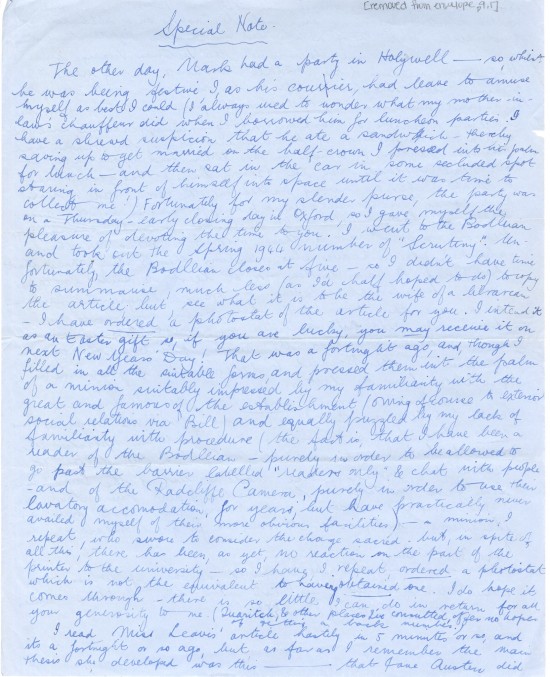 [removed from envelope, 9.5]
Special Note.
The other day, Mark had a party in Holywell — so whilst
he was being festive I, as his courier, had leave to amuse
myself as best I could (I always used to wonder what my mother-in-
law's chauffeur did when I borrowed him for luncheon parties. I
have a shrewd suspicion that he ate a sandwich — thereby
saving up to get married on the half-crown I pressed into his palm
for lunch — and then sat in the car in some secluded spot
staring in front of himself into space until it was time to
collect me!) Fortunately for my slender purse, the party was
on a Thursday — early closing day in Oxford, so I gave myself the
pleasure of devoting the time to you. I went to the Bodleian
and took out the Spring 1944 number of "Scrutiny". Un-
fortunately, the Bodleian closes at five — so I didn't have time
to summarise, much less (as I'd half hoped to do) to copy
the article, but see what it is to be the wife of a librarian
— I have ordered a photostat of the article for you. I intend it
as an Easter gift so, if you are lucky, you may receive it on
next New Years' Day! That was a fortnight ago, and though I
filled in all the suitable forms and pressed them into the palm
of a minion suitably impressed by my familiarity with the
great and famous of the establishment (owing of course to exterior
social relations via 'Bill') and equally puzzled by my lack of
familiarity with procedure (the fact is, that I have been a
reader of the Bodleian — purely in order to be allowed to
go past the barrier labelled "readers only" & chat with people
— and of the Radcliffe Camera, purely in order to use their
lavatory accomodation, for years, but have practically never
availed myself of their more obvious facilities) — a minion, I
repeat, who swore to consider the charge sacred. but, in spite of
all this, there has been, as yet, no reaction on the part of the
printer to the university — so I have, I repeat, ordered a photostat
which is not the equivalent to having obtained one. I do hope it
comes through — there is so little I can do in return for all
your generosity to me (& other
I read Miss Leavis' article hastily in 5 minutes or so, and
its a fortnight or so ago, but as far as I remember the main
thesis she developed was this — that Jane Austen did